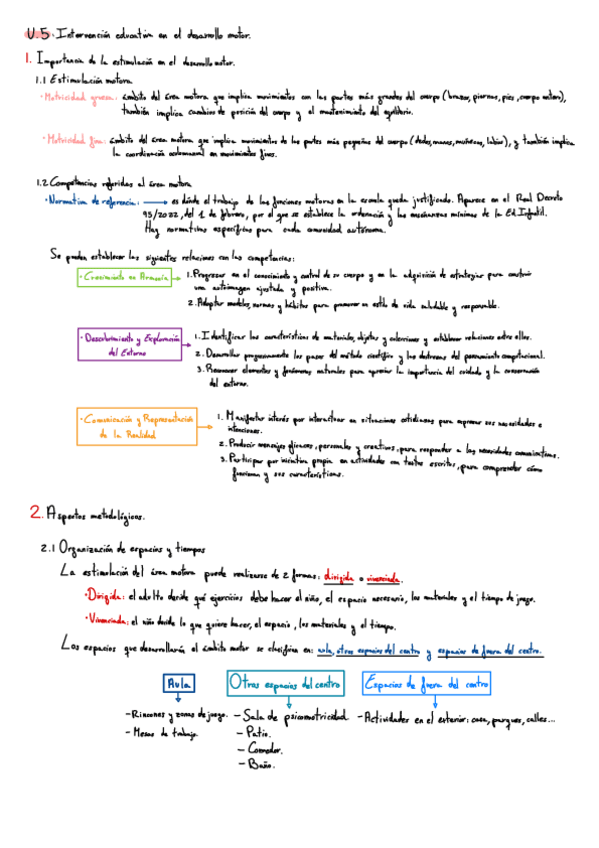 U.5 Intervención educativa en el desarrollo motor.
1. Importancia de la estimulación en el desarrollo motor.
1.1 Estimulación motora
· Motricidad gruesa: ámbito del área motora que implica movimientos con las partes más grandes del cuerpo (brazos, piernas, pies, cuerpo entero),
también implica cambios de posición del cuerpo y el mantenimiento del equilibrio.
· Motricidad fina: ámbito del área motora que implica movimientos de las partes más pequeñas del cuerpo (dedos, manos, muñecas, labios), y también implica
la coordinación en movimientos finos.
1.2 Competencias referidas al área motora
· Normativa de referencia: es dónde el trabajo de las funciones motoras en la escuela queda justificado. Aparece en el Real Decreto
95/2022, del 1 de febrero, por el que se establece la ordenación y las enseñanzas mínimas de la Ed.Infantil.
Hay normativas específicas para cada comunidad autónoma.
Se pueden establecer las siguientes relaciones con las competencias:
· Crecimiento en Armonía
1. Progresar en el conocimiento y control de su cuerpo y en la adquisición de estrategias para construir
una autoimagen ajustada y positiva.
2. Adoptar modelos, normas y hábitos para promover un estilo de vida saludable y responsable.
· Descubrimiento y Exploración
del Entorno
1. Identificar las características de materiales, objetos y colecciones y establecer relaciones entre ellos.
2. Desarrollar progresivamente los pasos del método científico y las destrezas del pensamiento computacional.
3. Reconocer elementos y fenómenos naturales para apreciar la importancia del cuidado y la conservación
del entorno.
· Comunicación y Representación
de la Realidad
1. Manifestar interés por interactuar en situaciones cotidianas para expresar sus necesidades e
intenciones.
2. Producir mensajes eficaces, personales y creativos, para responder a las necesidades comunicativas.
3. Participar por iniciativa propia en actividades con textos escritos, para comprender cómo
funcionan y sus características.
2. Aspectos metodológicos.
2.1 Organización de espacios y tiempos
La estimulación del área motora puede realizarse de 2 formas: dirigida o vivenciada.
· Dirigida: el adulto decide qué ejercicios debe hacer el niño, el espacio necesario, los materiales y el tiempo de juego.
· Vivenciada: el niño decide lo que quiere hacer, el espacio, los materiales y el tiempo.
Los espacios que desarrollaría el ámbito motor se clasifican en: aula, otros espacios del centro y espacios de fuera del centro.
Aula
Otros espacios del centro
Espacios de fuera del centro
- Rincones y zonas de juego.
- Sala de psicomotricidad
- Actividades en el exterior: casa, parques, calles...
- Mesas de trabajo.
- Patio.
- Comedor.
- Baño.